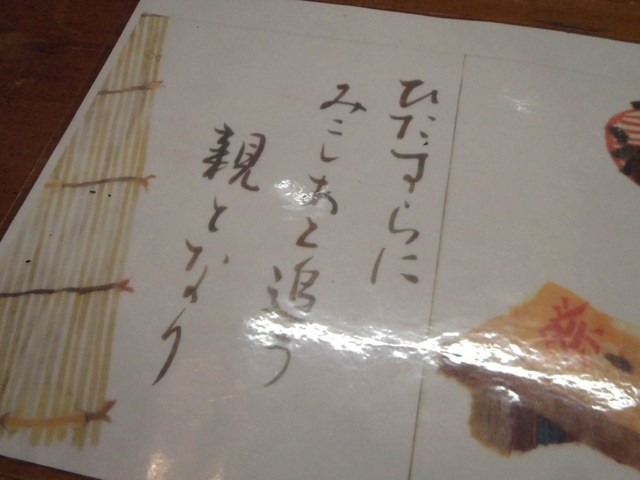 ひたすらに
みこしあと追う
親となり
祭